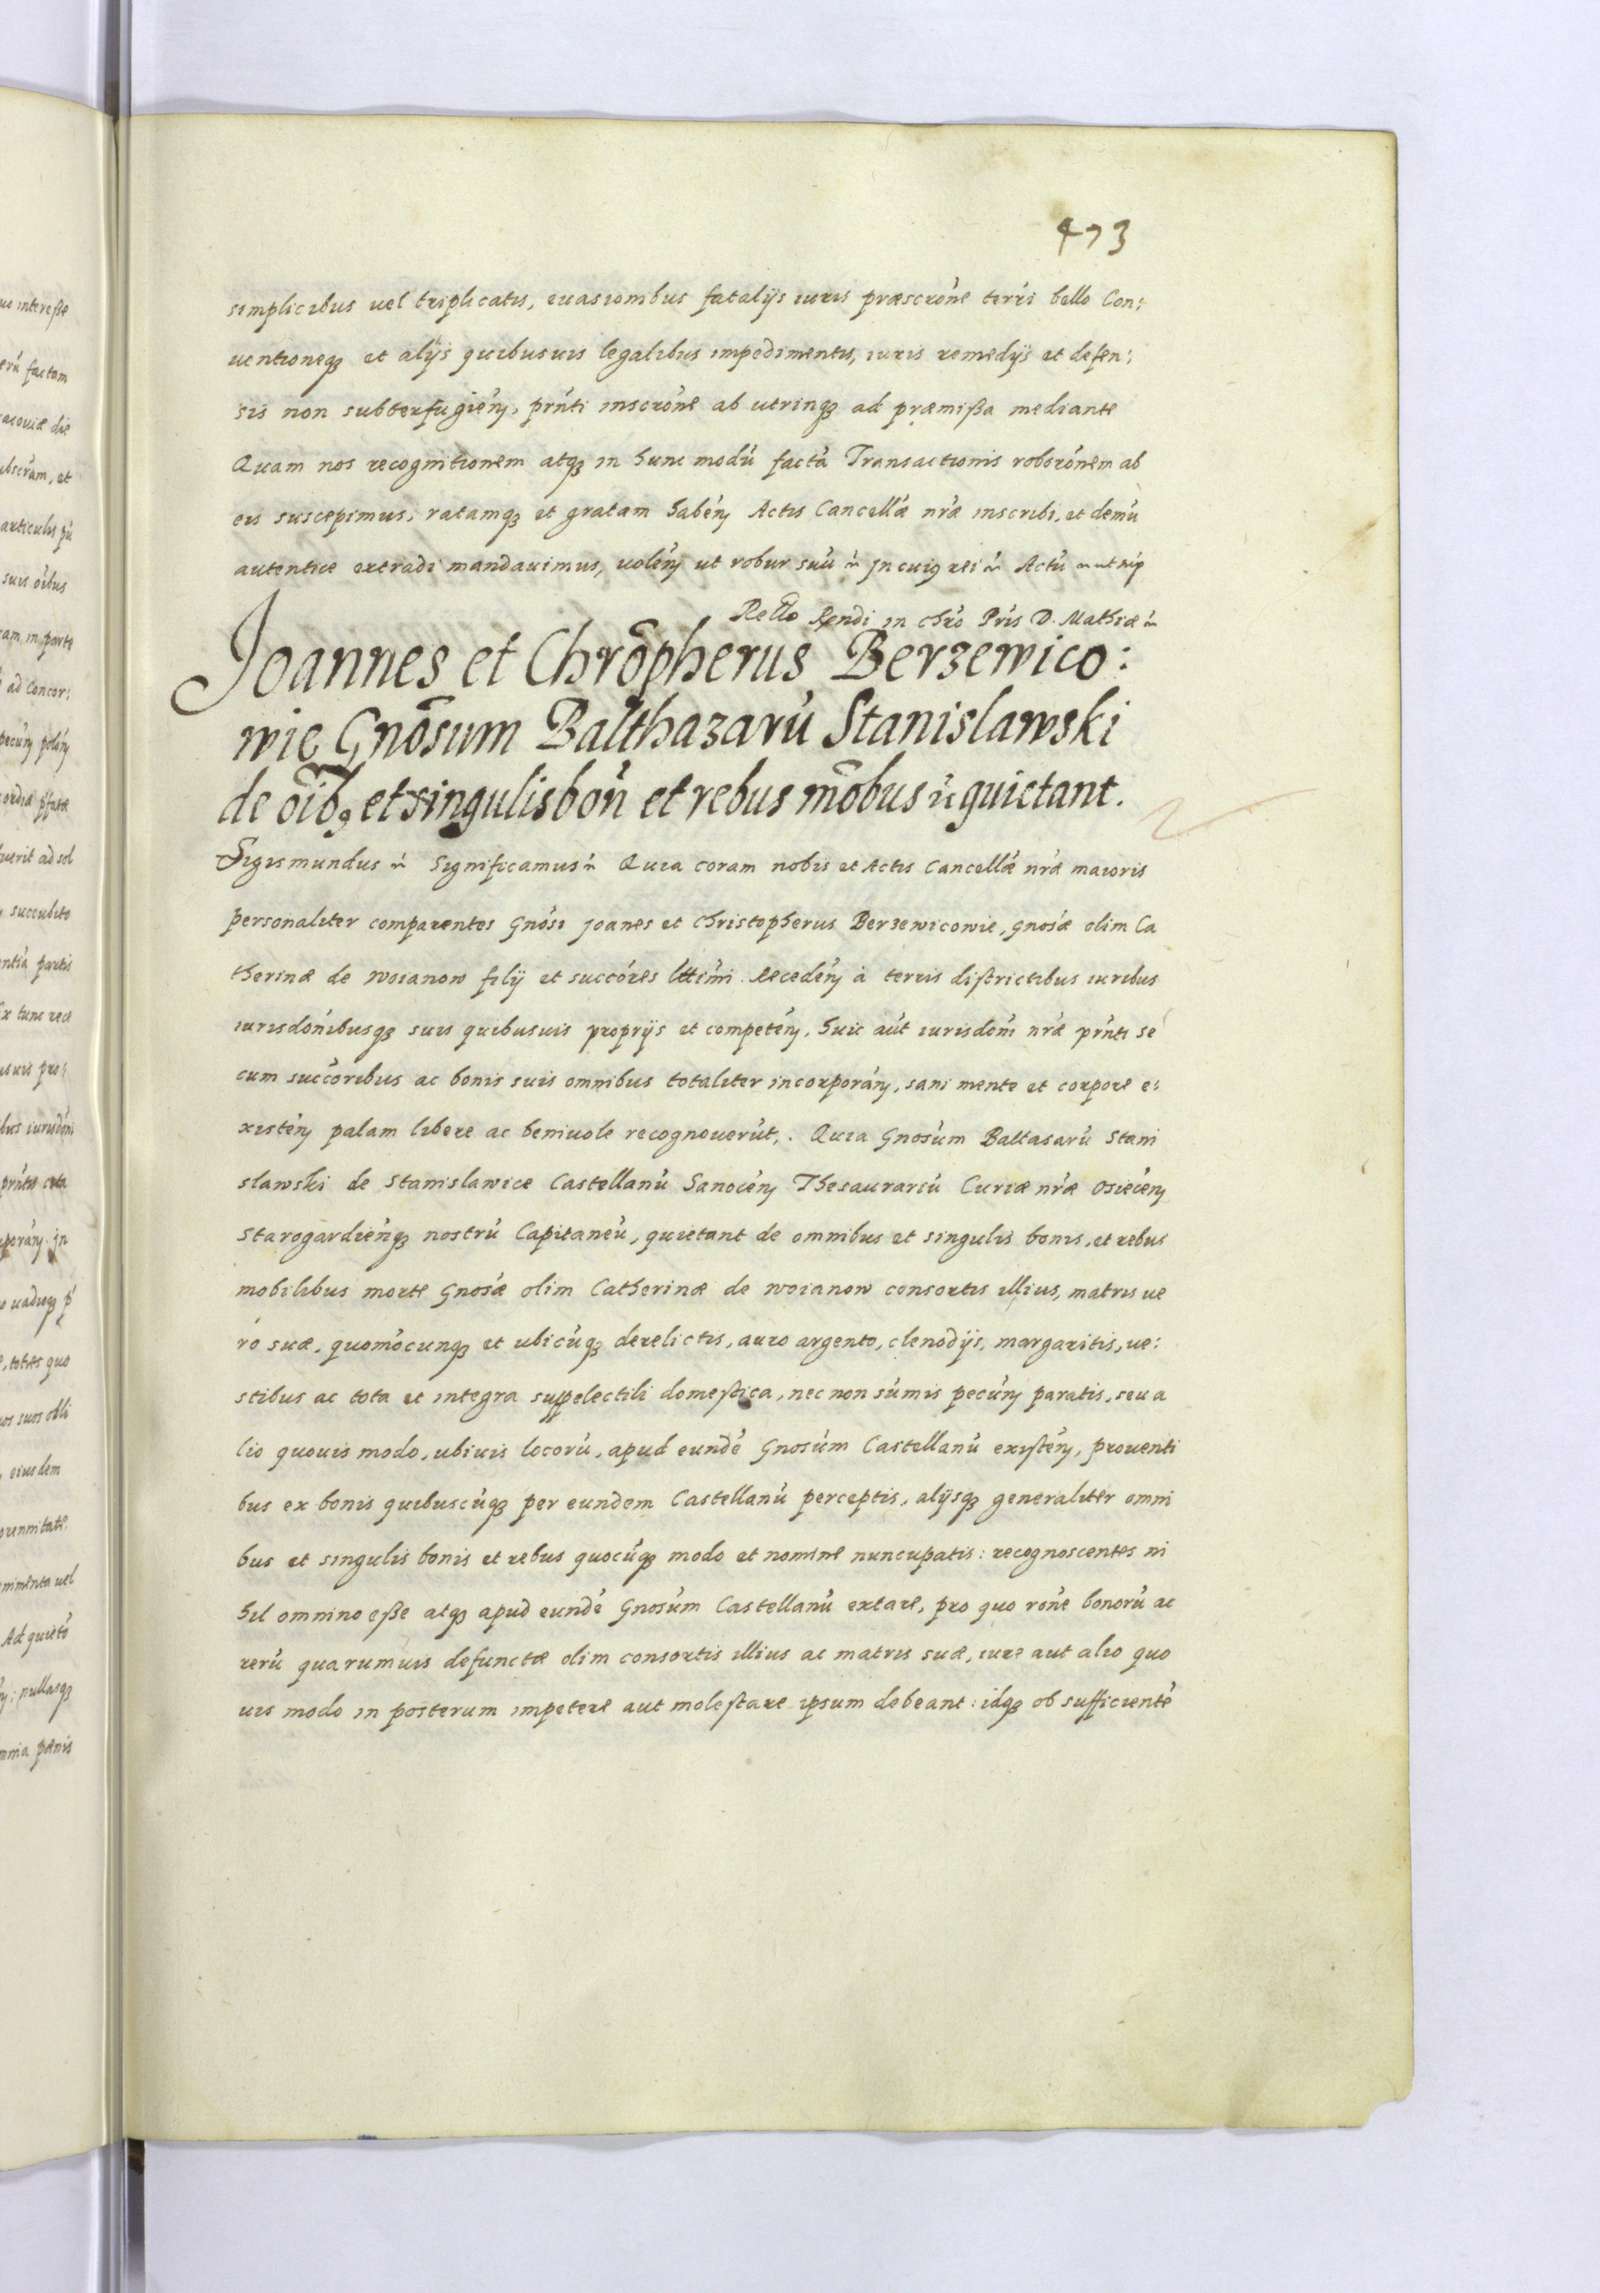 473
simplicibus uel triplicatis, euasionibus fatalijs iuris præscrōne terrī bello Con:
uentioneq₃ et alijs quibusuis legalibus impedimentis, iuris remedijs et defen:
sis non subterfugień, prn̄ti inscrōne ab utrinq₃ ad præmißa mediante
Quam nos recognitionem atq₃ in hunc modū factā Transactionis roborōnem ab
eis suscepimus, ratamq₃ et gratam habēn Actis Cancellæ nr̄æ inscribi, et demū
autentice extradi mandauimus, uolēn ut robur suū ꝛc̄ Jn cuiꝰ rei ꝛc̄ Actū ut
Rello Rendi in chr̄o Pr̄is D. Mathiæ ꝛc̄
Joannes et Chrōpherus Berzewico:
wie Gnōsum Balthazarū Stanislawski
de oīb₉ et singulis bon̄ et rebus mōbus ꝛc̄ quietant.
Sigismundus ꝛc̄ Significamus ꝛc̄ Quia coram nobis et Actis Cancellæ nr̄æ maioris
personaliter comparentes Gnōsi Joanes et Christopherus Berzewicowie, Gnosæ olim Ca
therinæ de Woianow filij et succōres lttimi. Recedēn à terris districtibus iuribus
iurisdōnibusq₃ suis quibusuis proprijs et competēn, huic aūt iurisdōni nr̄æ prn̄ti se
cum succōribus ac bonis suis omnibus totaliter incorporān, sani mente et corpore e:
xistēn palam libere ac beniuole recognouerūt. Quia Gnosūm Baltasarū Stani
slawski de Stanislawice Castellanū Sanocēn Thesaurariū Curiæ nr̄æ Osiecēn
Starogardiēnq₃ nostrū Capitaneū, quietant de omnibus et singulis bonis, et rebus
mobilibus morte Gnosæ olim Catherinæ de Woianow consortis illius, matris ue
ro suæ, quomōcunq₃ et ubicūq₃ derelictis, auro argento, clenodijs, margaritis, ue:
stibus ac tota et integra suppelectili domestica, nec non sūmis pecūn paratis, seu a
lio quouis modo, ubiuis locorū, apud eundē Gnosūm Castellanū existēn, prouenti
bus ex bonis quibuscūq₃ per eundem Castellanū perceptis, alijsq₃ generaliter omni
bus et singulis bonis et rebus quocūq₃ modo et nomine nuncupatis: recognoscentes ni
hil omnino eße atq₃ apud eundē Gnosūm Castellanū extare, pro quo rōne bonorū ac
rerū quarumuis defunctæ olim consortis illius ac matris suæ, iure aut alio quo
uis modo in posterum impetere aut molestare ipsum debeant: idq₃ ob sufficientē